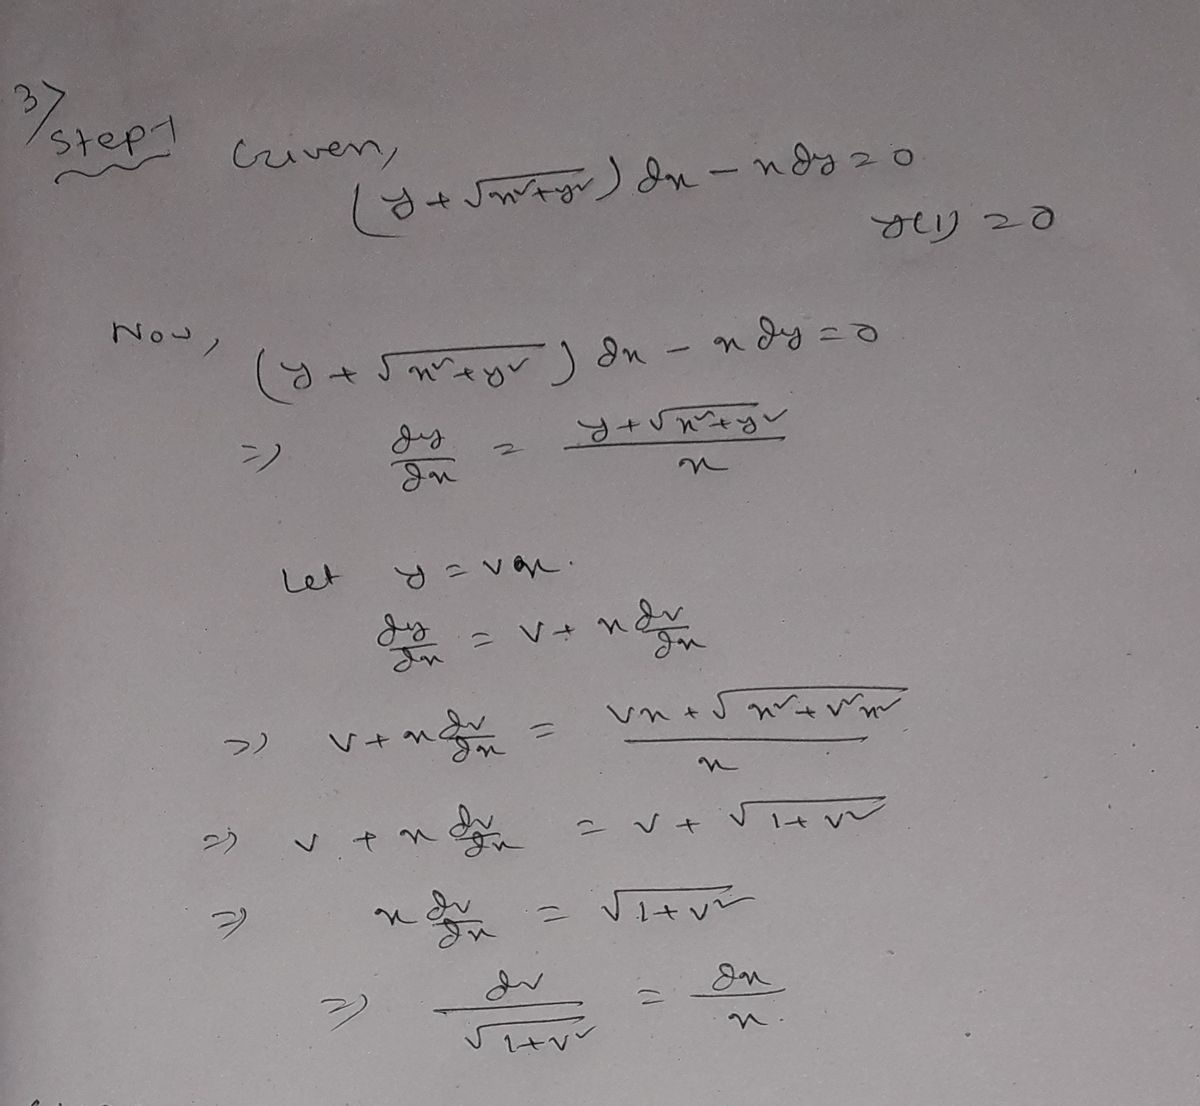 3>
Step-1 Given,
(y + √(x² + y²)) dx - x dy = 0
y(1) = 0
Now,
(y + √(x² + y²)) dx - x dy = 0
=> dy/dx = (y + √(x² + y²))/x
Let y = vx.
dy/dx = v + x dv/dx
=> v + x dv/dx = (vx + √(x² + v²x²))/x
=> v + x dv/dx = v + √(1 + v²)
=> x dv/dx = √(1 + v²)
=> dv/√(1 + v²) = dx/x.